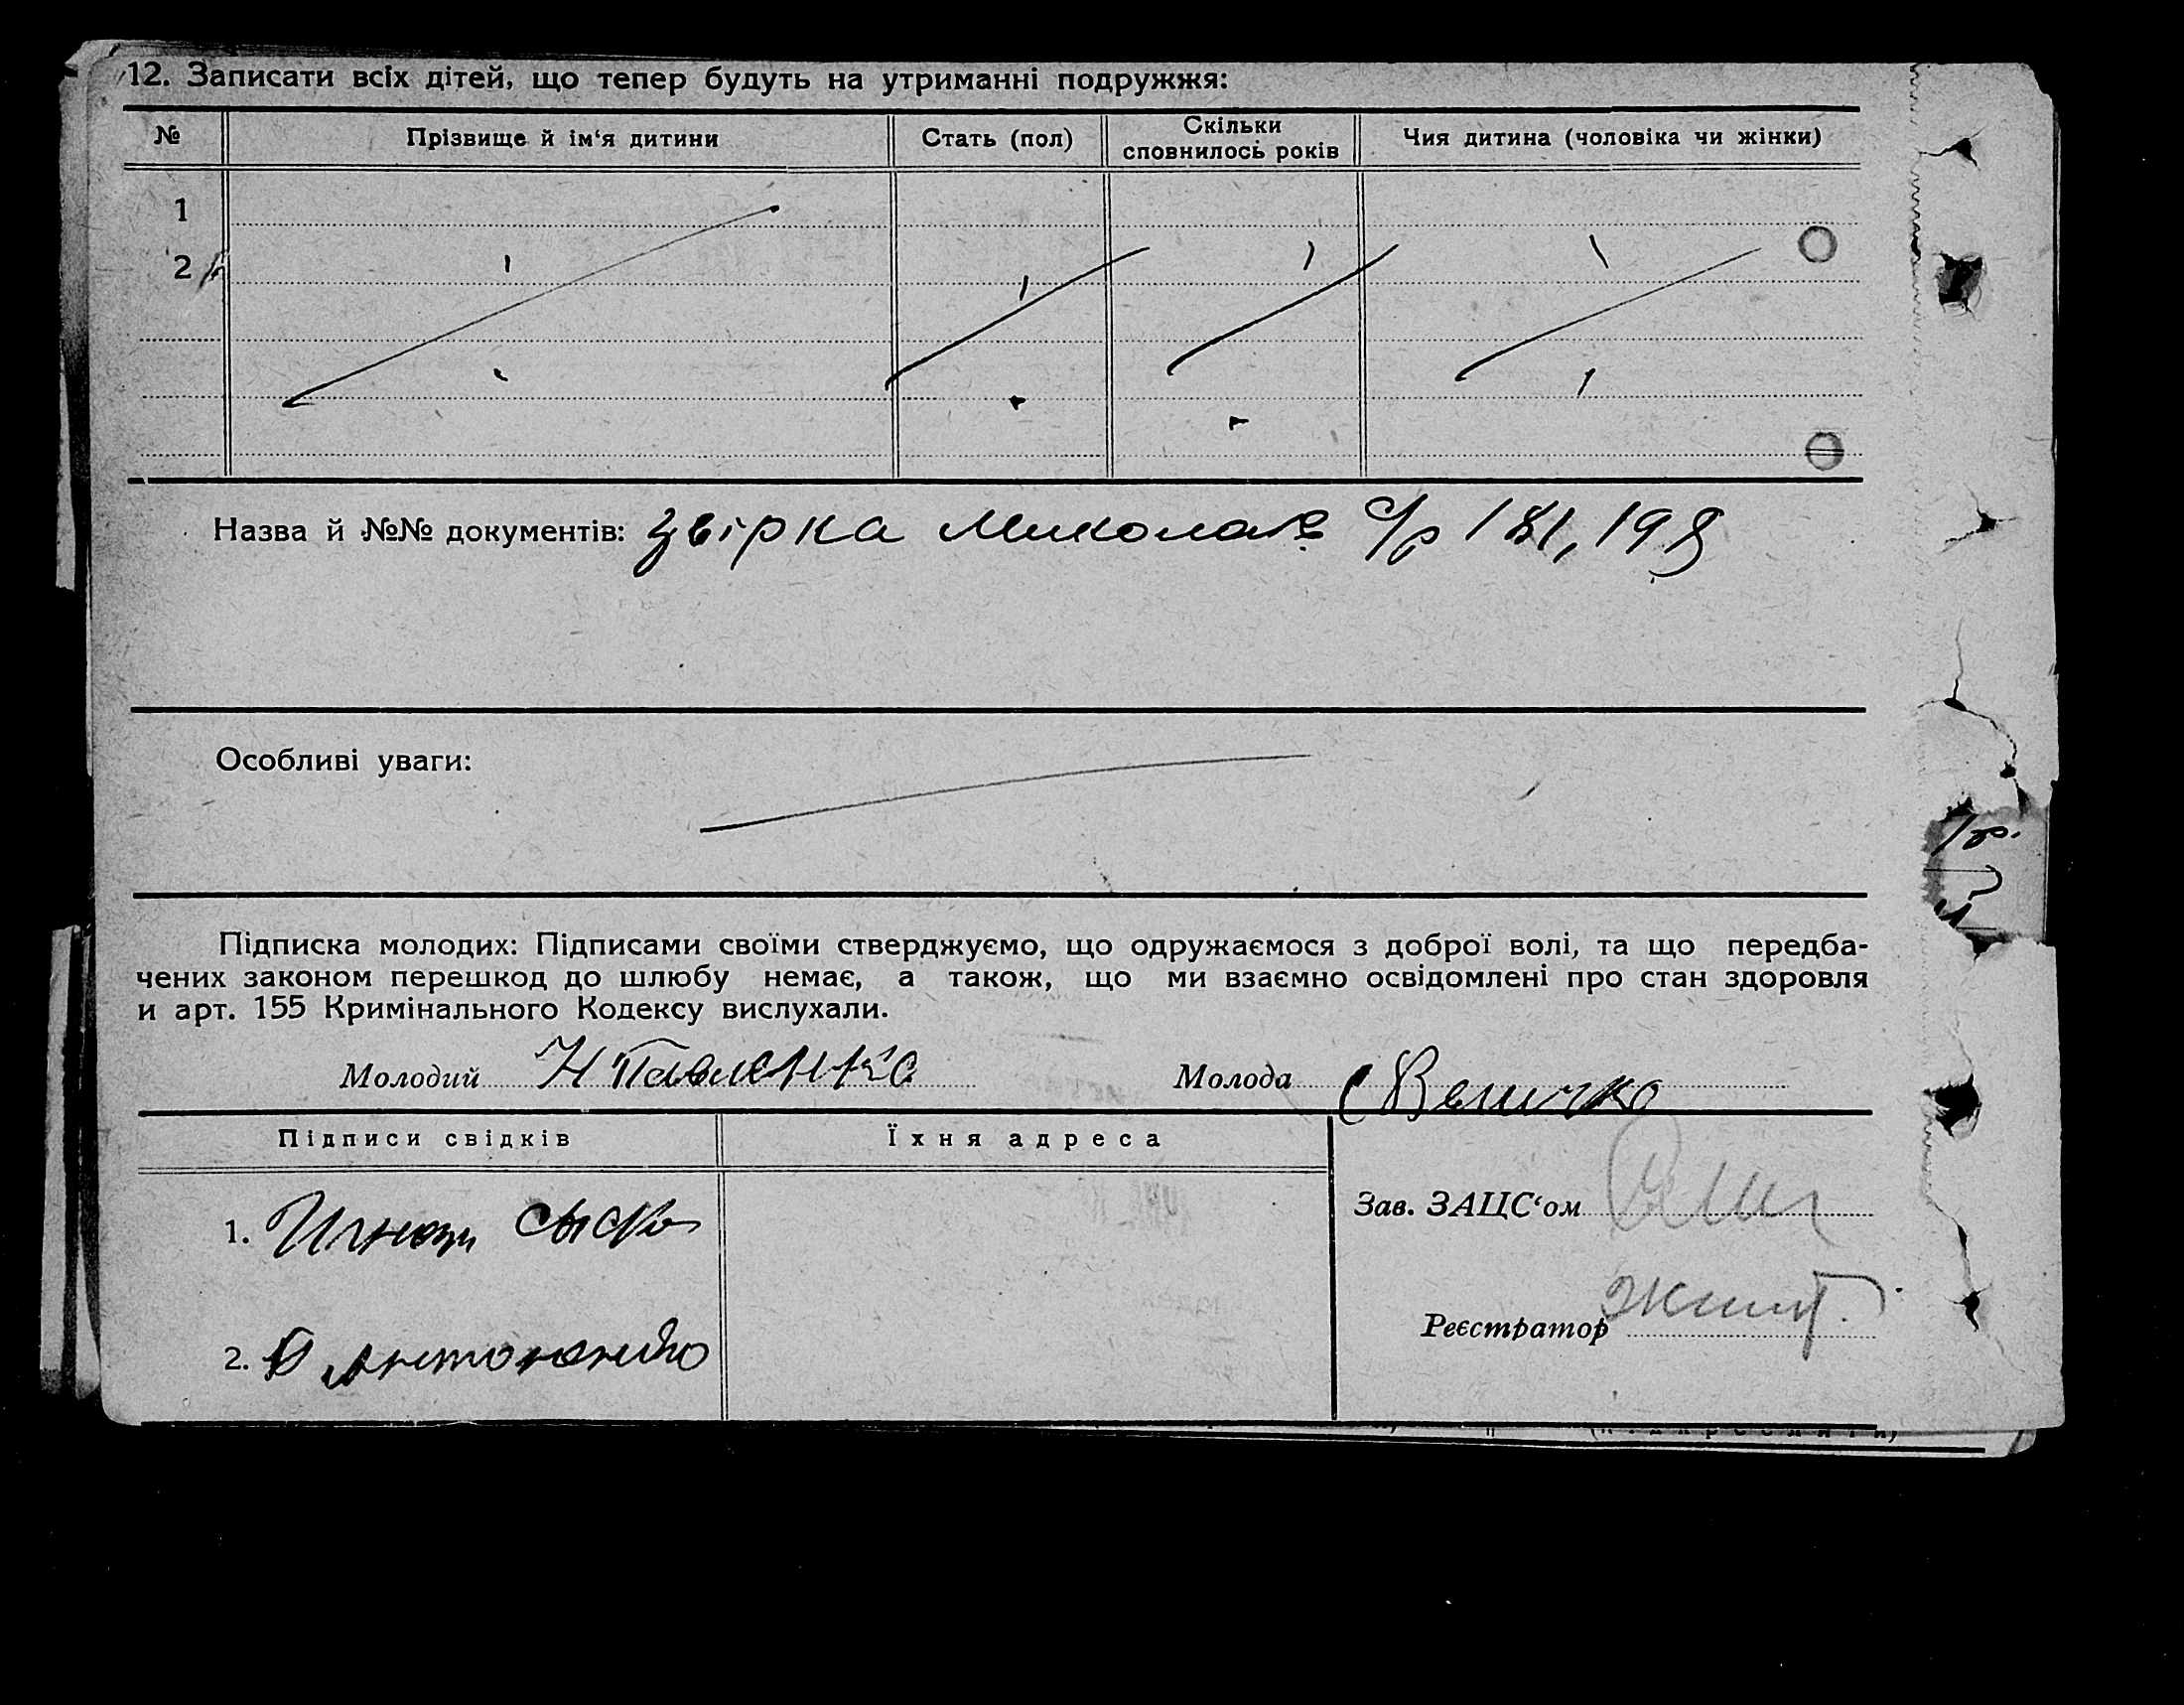 12. Записати всіх дітей, що тепер будуть на утриманні подружжя:
№ Прізвище й ім‘я дитини Стать (пол) Скільки сповнилось років Чия дитина (чоловіка чи жінки)
1
2
Назва й №№ документів: звірка Микола с/р 181, 198
Особливі уваги:
Підписка молодих: Підписами своїми стверджуємо, що одружаємося з доброї волі, та що передба-
чених законом перешкод до шлюбу немає, а також, що ми взаємно освідомлені про стан здоровля
и арт. 155 Кримінального Кодексу вислухали.
Молодий Н Павленко Молода Величко
Підписи свідків Їхня адреса
Зав. ЗАЦС‘ом
1.
Реєстратор
2.
(підкреслити)